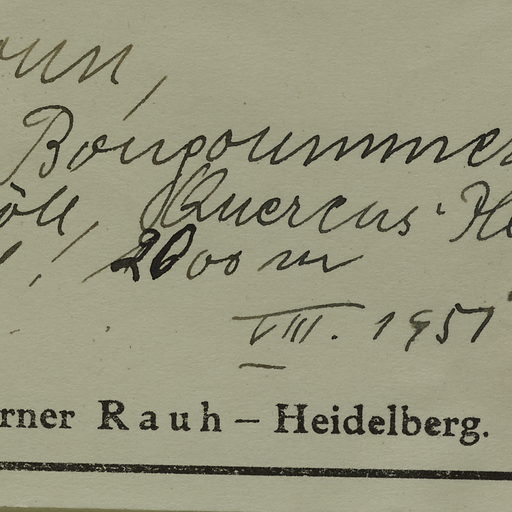 Bougoummez
öll, Quercus-
! 2000 m
VIII. 1951
rner Rauh – Heidelberg.